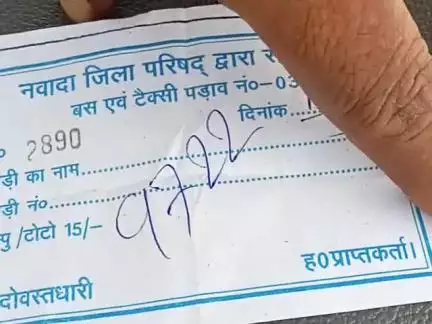 नवादा जिला परिषद् द्वारा
बस एवं टैक्सी पड़ाव नं०-03
2890 दिनांक...
ड़ी का नाम
ड़ी नं०
/टोटो 15/-
ह0प्राप्तकर्ता।
दोवस्तधारी